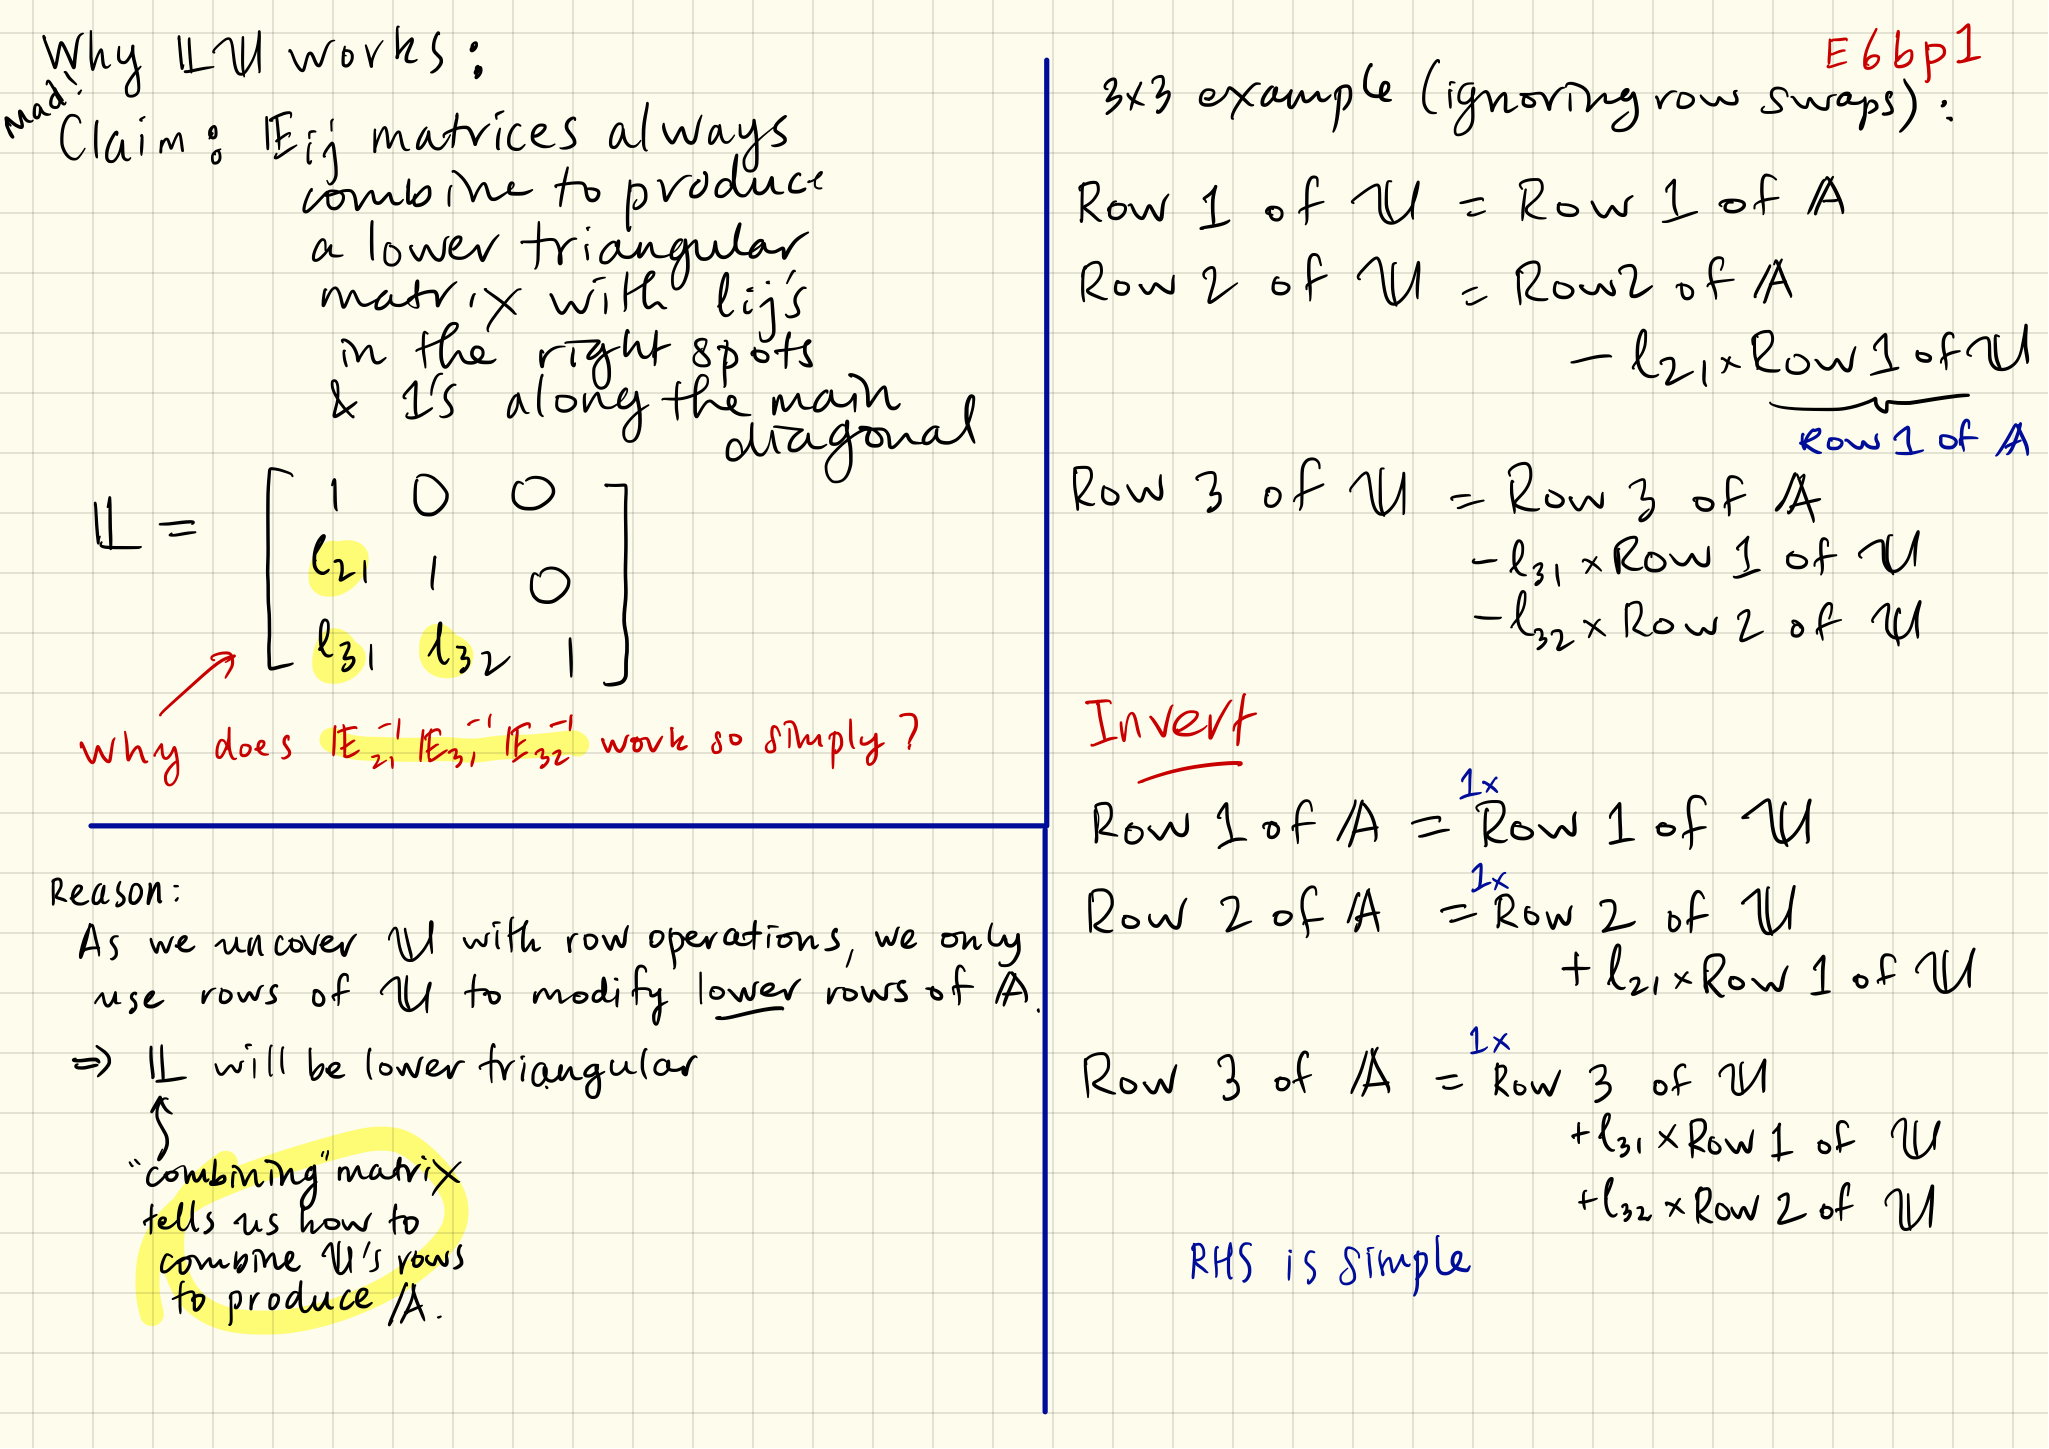 Why 𝕃𝕌 works:
Mad!
Claim: 𝔼ij matrices always
combine to produce
a lower triangular
matrix with lij's
in the right spots
& 1's along the main
diagonal
𝕃 = [ 1 0 0
l21 1 0
l31 l32 1 ]
Why does 𝔼21⁻¹ 𝔼31⁻¹ 𝔼32⁻¹ work so simply?
Reason:
As we uncover 𝕌 with row operations, we only
use rows of 𝕌 to modify lower rows of 𝔸.
⇒ 𝕃 will be lower triangular
"combining" matrix
tells us how to
combine 𝕌's rows
to produce 𝔸.
E6bp1
3x3 example (ignoring row swaps):
Row 1 of 𝕌 = Row 1 of 𝔸
Row 2 of 𝕌 = Row 2 of 𝔸
- l21 × Row 1 of 𝕌
Row 1 of 𝔸
Row 3 of 𝕌 = Row 3 of 𝔸
- l31 × Row 1 of 𝕌
- l32 × Row 2 of 𝕌
Invert
1x
Row 1 of 𝔸 = Row 1 of 𝕌
1x
Row 2 of 𝔸 = Row 2 of 𝕌
+ l21 × Row 1 of 𝕌
1x
Row 3 of 𝔸 = Row 3 of 𝕌
+ l31 × Row 1 of 𝕌
+ l32 × Row 2 of 𝕌
RHS is simple